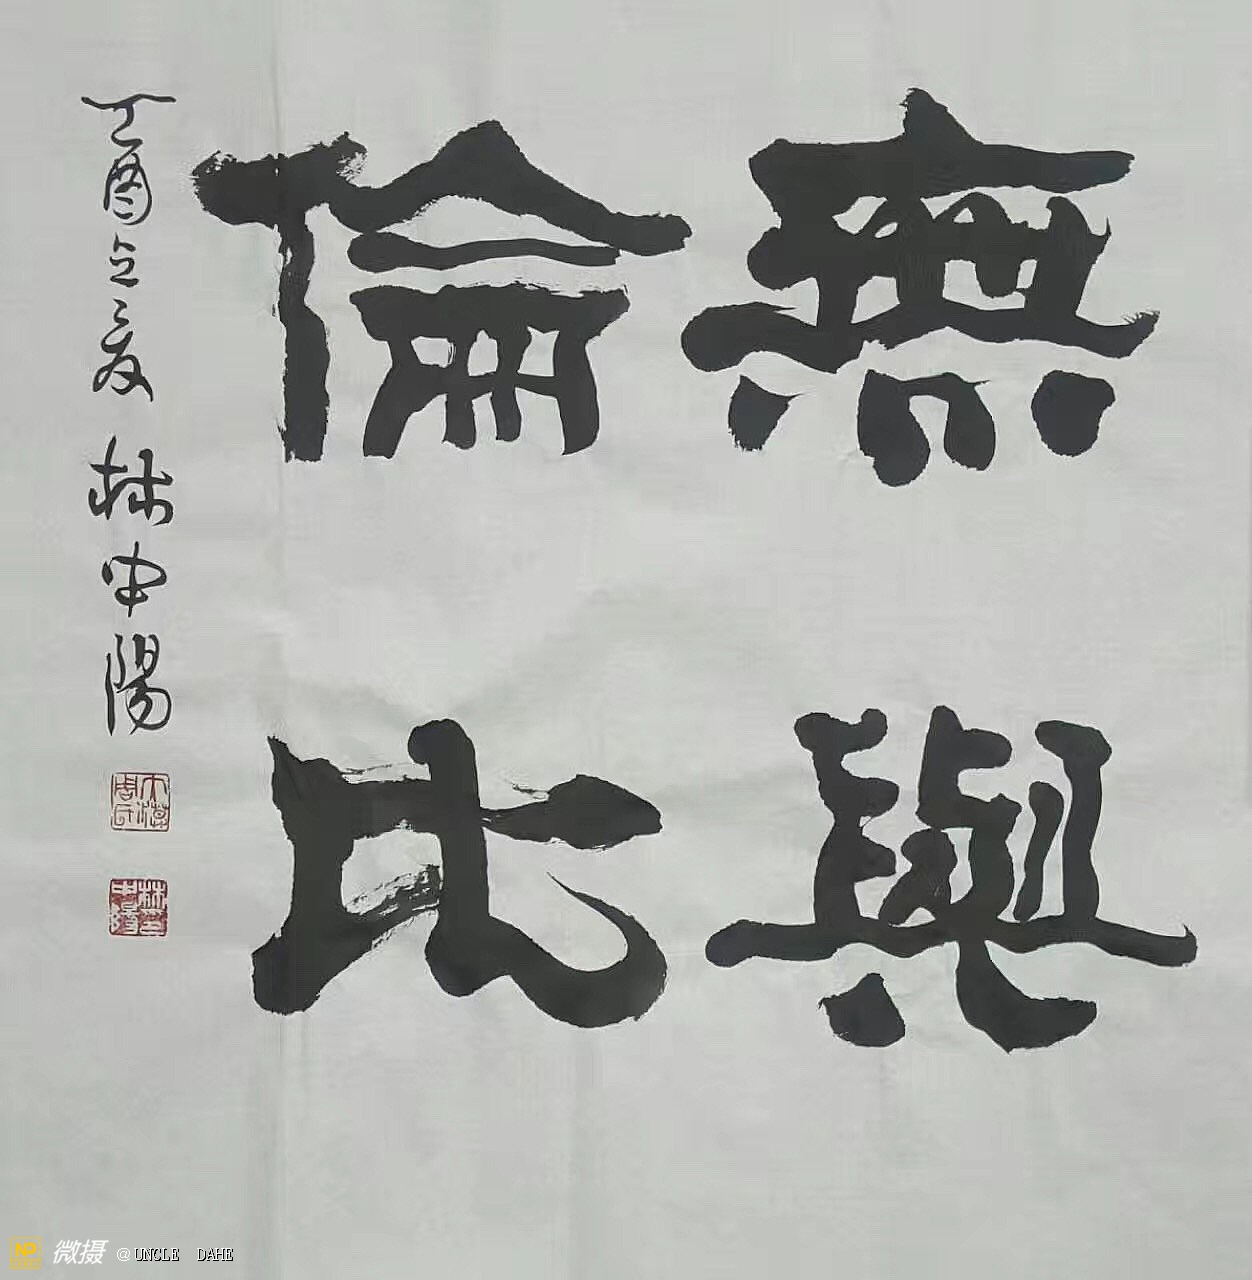 無與
倫比
丁酉之夏 林申陽
林申陽
微摄 @UNCLE DAHE